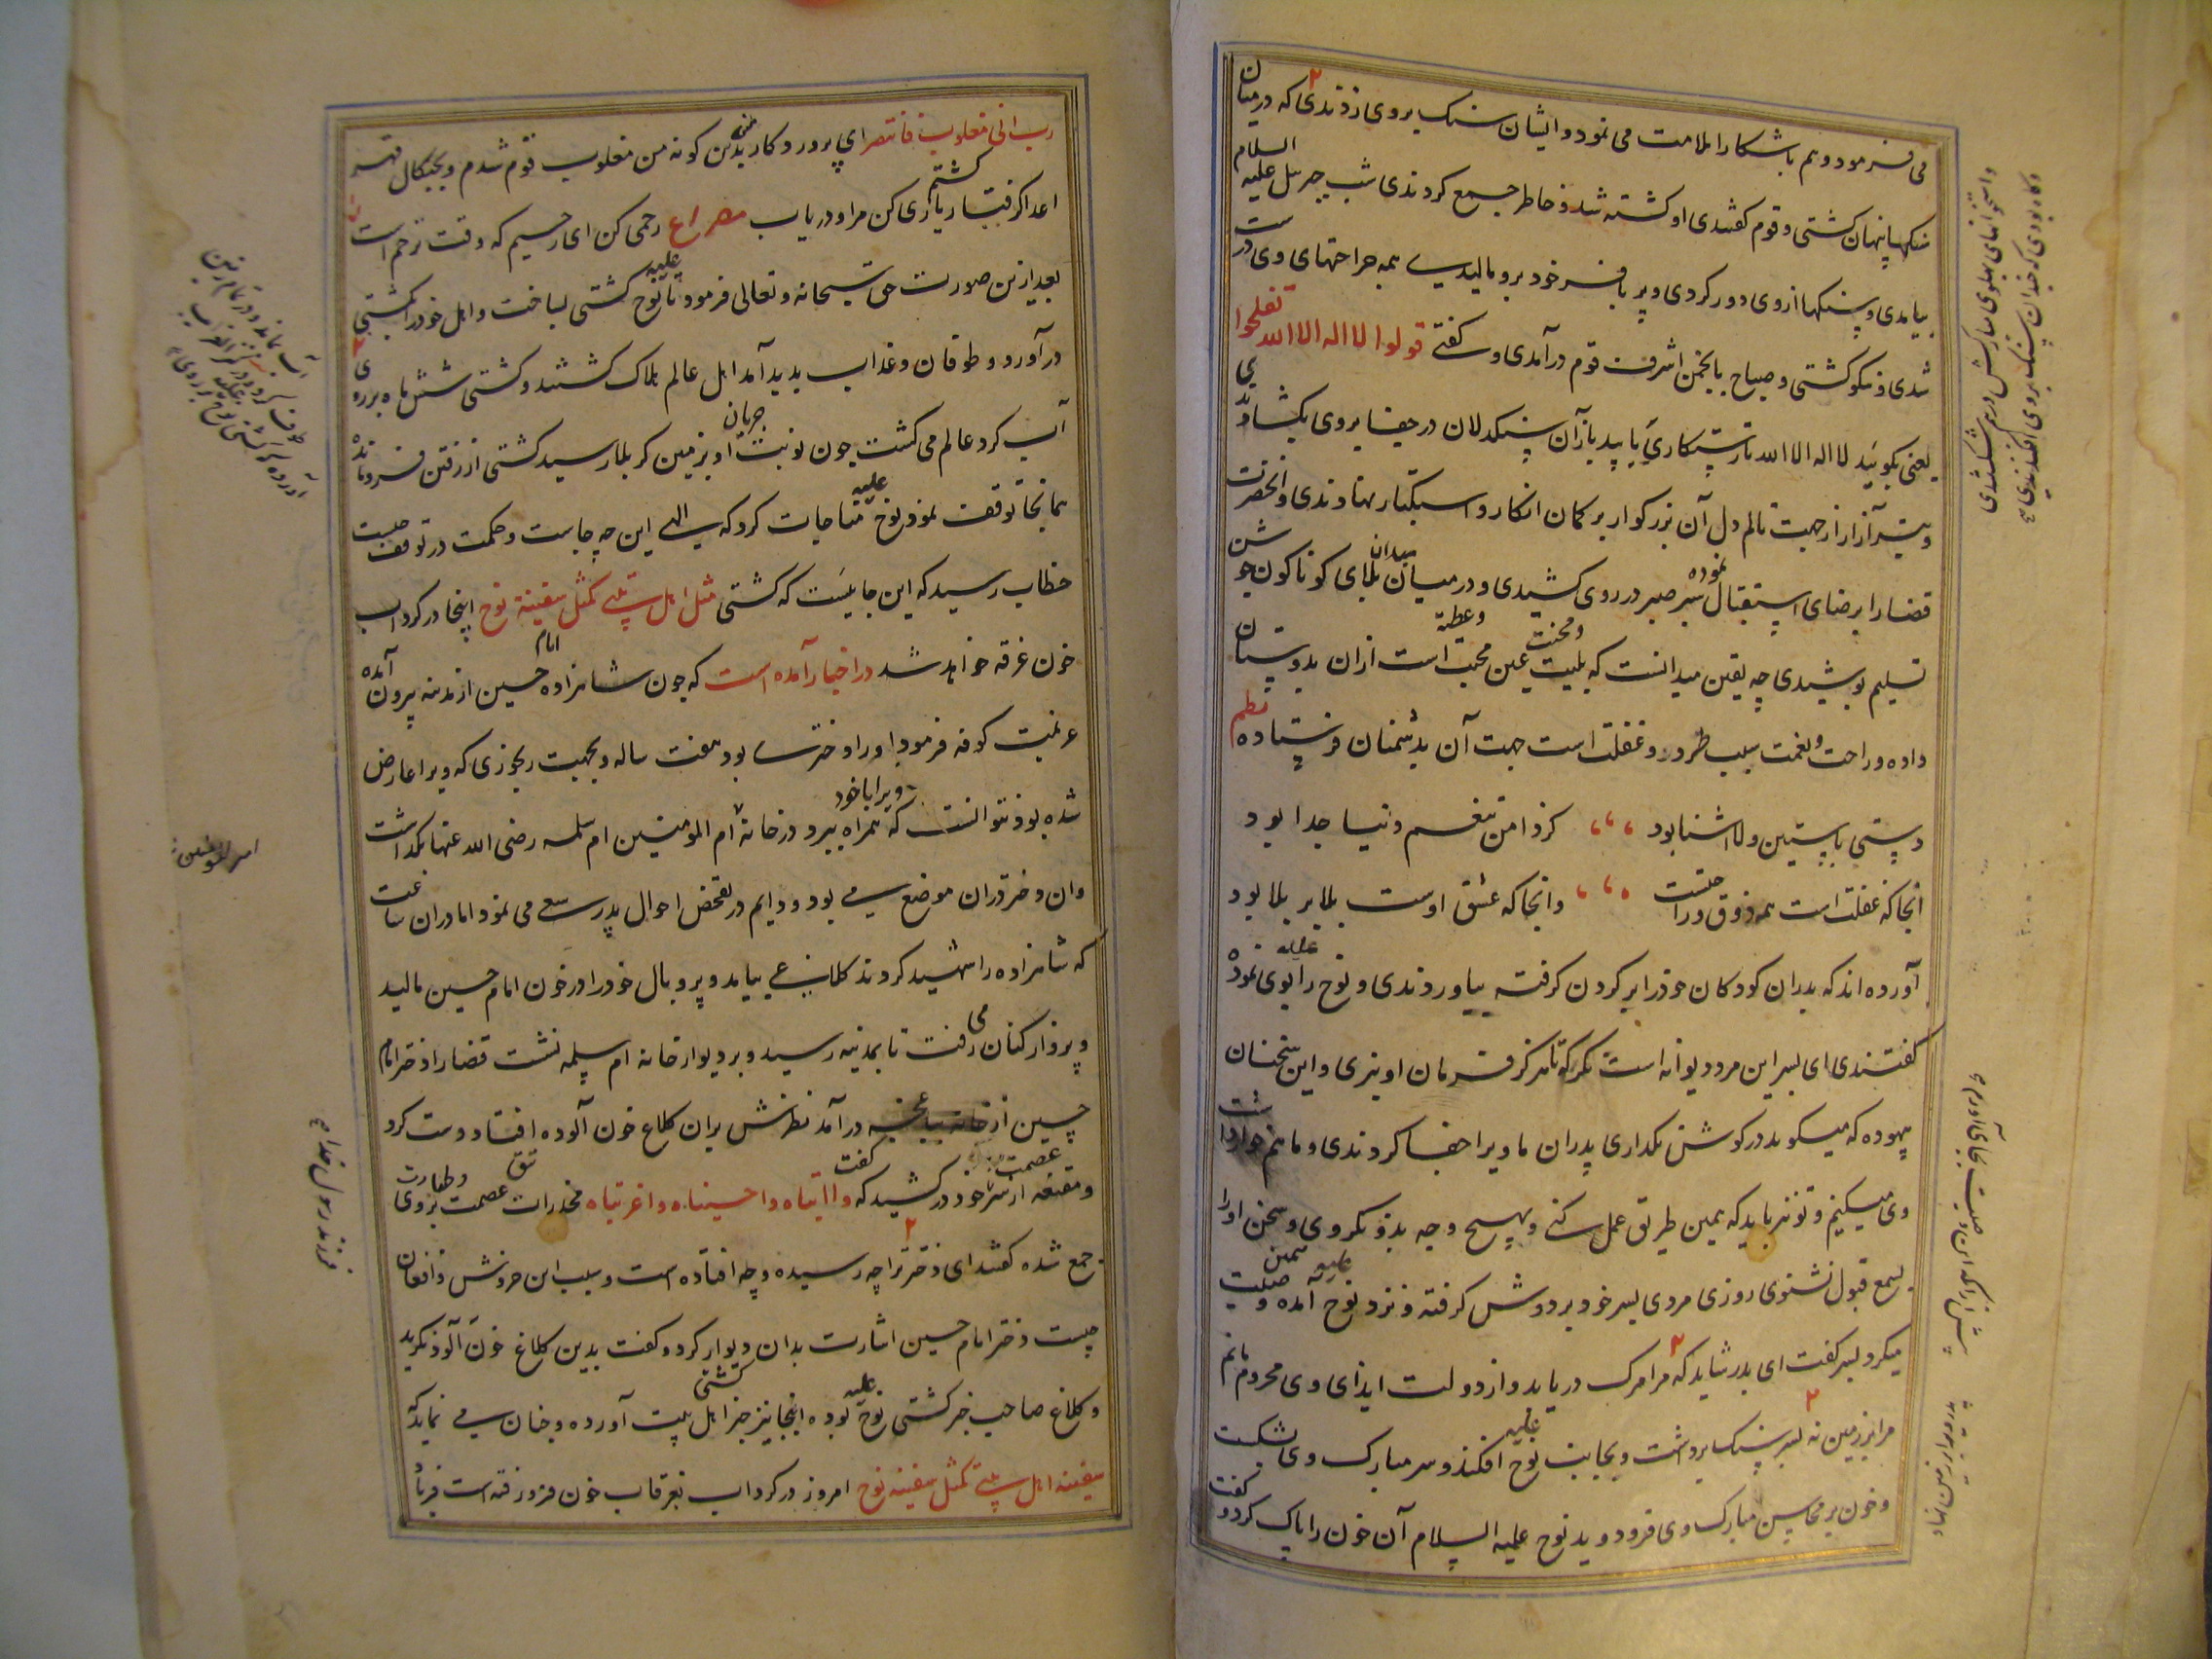 می فرمود و هم با شکارا ملامت می نمود و ایشان سنک بروی زدندی که در میان
سنکها پنهان کشتی و قوم کفتندی او کشته شد و خاطر جمع کردندی شب جبرئیل علیه السلام
بیامدی و سنکها از وی دور کردی و پر با فر خود برو مالیدی همه جراحتهای وی درست
شدی و نیکو کشتی و صباح بانجمن اشرف قوم درآمدی و کفتی قولوا لا اله الا الله تفلحوا
یعنی بکوئید لا اله الا الله تا رستکاری یابید باز آن سنکدلان در جفا بروی بکشادندی
و تیر آزار از جهت تالم دل آن بزرکوار بر کمان انکار و استکبار نهادندی و آنحضرت
قضا را برضای استقبال نموده سپر صبر در روی کشیدی و در میدان بلای کوناکون جوشن
تسلیم پوشیدی چه یقین میدانست که بلیت و محنت عین محبت و عطیه است ازان بدوستان
داده و راحت و نعمت سبب طرد و غفلت است جهت آن بدشمنان فرستاده نظم
دوستی با ستین ولا آشنا بود کز دامن تنعم دنیا جدا بود
آنجا که غفلت است همه ذوق و راحتست وانجا که عشق اوست بلا بر بلا بود
آورده اند که پدران کودکان خود را بر کردن کرفته بیاوردندی و نوح علیه را بوی نموده
کفتندی ای پسر این مرد دیوانه است نکر که تا هرکز فرمان او نبری و این سخنان
بیهوده که میکوید در کوش نکداری پدران ما ویرا جفا کردندی و ما هم خواردا شت
وی میکنیم و تو نیز باید که بهمین طریق عمل کنی و بهیچ وجه بدو نکروی و سخن او را
بسمع قبول نشنوی روزی مردی پسر خود بردوش کرفته و نزد نوح علیه آمده و همین وصیت
میکرد پسر کفت ای پدر شاید که مرا مرک دریابد و از دولت ایذای وی محروم مانم
مرا بر زمین نه پسر سنک برداشت و بجانب نوح علیه افکند و سر مبارک وی بشکست
و خون بر محاسن مبارک وی فرو دوید نوح علیه السلام آن خون را پاک کرد و کفت
رب انی مغلوب فانتصر ای پرورد کار من بدین کونه من مغلوب قوم شدم و بچنکال قهر
اعدا کرفتار کشتم یاری کن مرا و دریاب مصراع رحمی کن ای رحیم که وقت ترحم است
بعد ازین صورت حق سبحانه و تعالی فرمود تا نوح علیه کشتی بساخت و اهل خود را بکشتی
درآورد و طوفان و عذاب بدید آمد اهل عالم هلاک کشتند و کشتی شش ماه بر روی
آب کرد عالم می کشت چون نوبت جریان او بزمین کربلا رسید کشتی از رفتن فرو مانده
همانجا توقف نمود نوح علیه مناجات کرد که الهی این چه جاست و حکمت در توقف چیست
خطاب رسید که این جائیست که کشتی مثل اهل بیتی کمثل سفینة نوح اینجا در کرداب
خون غرقه خواهد شد در اخبار آمده است که چون شاهزاده امام حسین از مدینه بیرون آمده
عزیمت کوفه فرمود او را دختری بود هفت ساله و بجهت رنجوری که ویرا عارض
شده بود نتوانست که ویرا با خود همراه ببرد در خانهٔ ام المومنین ام سلمه رضی الله عنها بکذاشت
وان دختر دران موضع می بود و دایم در تفحص احوال پدر سعی می نمود اما دران ساعت
که شاهزاده را شهید کردند کلاغی بیامد و پر و بال خود را در خون امام حسین مالید
و پرواز کنان می رفت تا بمدینه رسید و بر دیوار خانه ام سلمه نشست قضا را دختر امام
حسین از خانه درآمد نظرش بران کلاغ خون آلوده افتاد دست کرد
و مقنعه عصمت از سر خود درکشید که کفت وا ابتاه وا حسیناه وا غربتاه مخدرات تتق عصمت و طهارت بروی
جمع شده کفتند ای دختر ترا چه رسیده و چه افتاده است و سبب این خروش و افغان
چیست دختر امام حسین اشارت بدان دیوار کرد و کفت بدین کلاغ خون آلود نکرید
و کلاغ صاحب خبر کشتی نوح علیه بوده اینجا نیز خبر کشتی اهل بیت آورده و چنان می نماید که
سفینه اهل بیتی کمثل سفینة نوح امروز در کرداب بغرقاب خون فرو رفته است فریاد
امر المومنین
فرزند رسول خدا